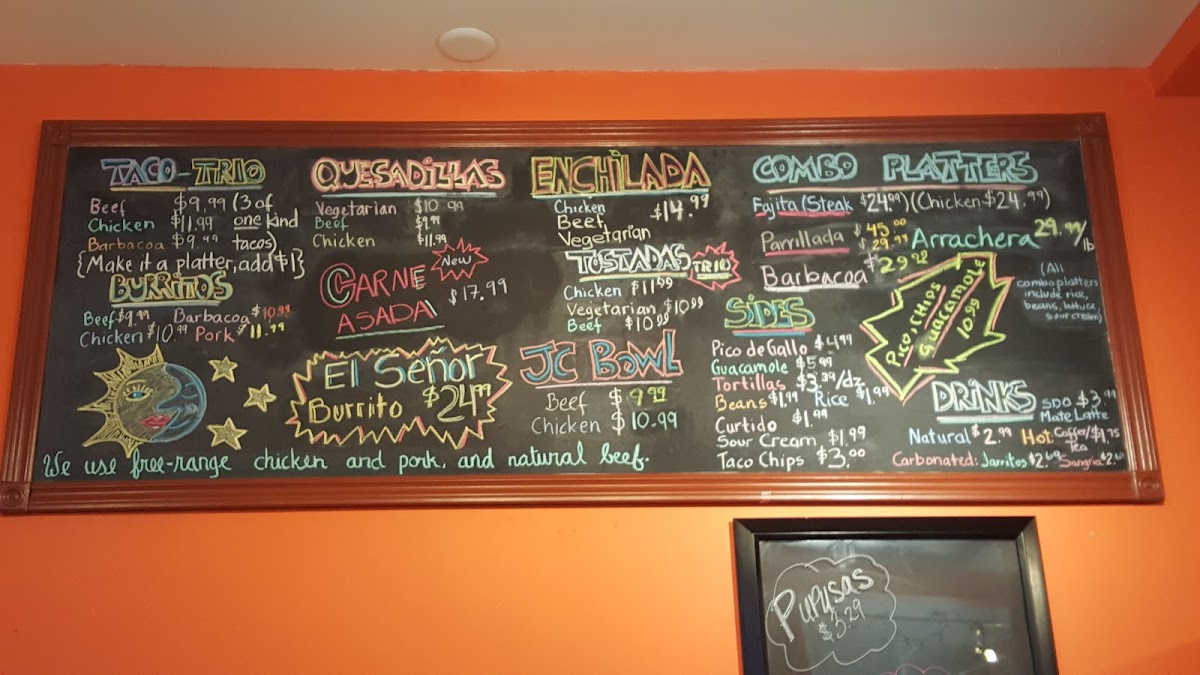 TACO-TRIO
Beef $9.99 (3 of
Chicken $11.99 one kind
Barbacoa $9.99 tacos)
{Make it a platter, add $1}
BURRITOS
Beef $9.99 Barbacoa $10.99
Chicken $10.99 Pork $11.99
QUESADILLAS
Vegetarian $10.99
Beef $9.99
Chicken $11.99
New
CARNE
ASADA $17.99
El Señor
Burrito $24.99
ENCHILADA
Chicken
Beef $14.99
Vegetarian
TOSTADAS TRIO
Chicken $11.99
Vegetarian $10.99
Beef $10.99
JC BOWL
Beef $9.99
Chicken $10.99
COMBO PLATTERS
Fajita (Steak $24.99) (Chicken $24.99)
Parrillada $45.00
$29.99
Arrachera 29.99/lb
Barbacoa $29.99
(All
combo platters
include rice,
beans, lettuce,
sour cream)
SIDES
Pico de Gallo $4.99
Guacamole $5.99
Tortillas $3.39/dz
Beans $1.99 Rice $1.99
Curtido $1.99
Sour Cream $1.99
Taco Chips $3.00
PICO, CHIPS
Guacamole
10.99
DRINKS
$3.99
Mate Latte
Natural $2.99 Hot: Coffee/Tea $1.75
Carbonated: Jarritos $2.69 Sangria $2.69
We use free-range chicken and pork, and natural beef.
Pupusas
$3.29